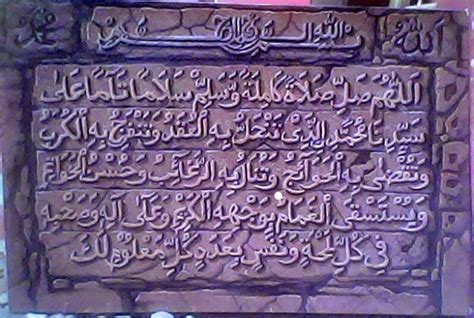 الله بسم الله الرحمن الرحيم محمد
اَللّٰهُمَّ صَلِّ صَلَاةً كَامِلَةً وَسَلِّمْ سَلَامًا تَامًّا عَلَى
سَيِّدِنَا مُحَمَّدِ الَّذِيْ تَنْحَلُّ بِهِ الْعُقَدُ وَتَنْفَرِجُ بِهِ الْكُرَبُ
وَتُقْضَى بِهِ الْحَوَائِجُ وَتُنَالُ بِهِ الرَّغَائِبُ وَحُسْنُ الْخَوَاتِمِ
وَيُسْتَسْقَى الْغَمَامُ بِوَجْهِهِ الْكَرِيْمِ وَعَلَى آلِهِ وَصَحْبِهِ
فِيْ كُلِّ لَمْحَةٍ وَنَفَسٍ بِعَدَدِ كُلِّ مَعْلُوْمٍ لَكَ